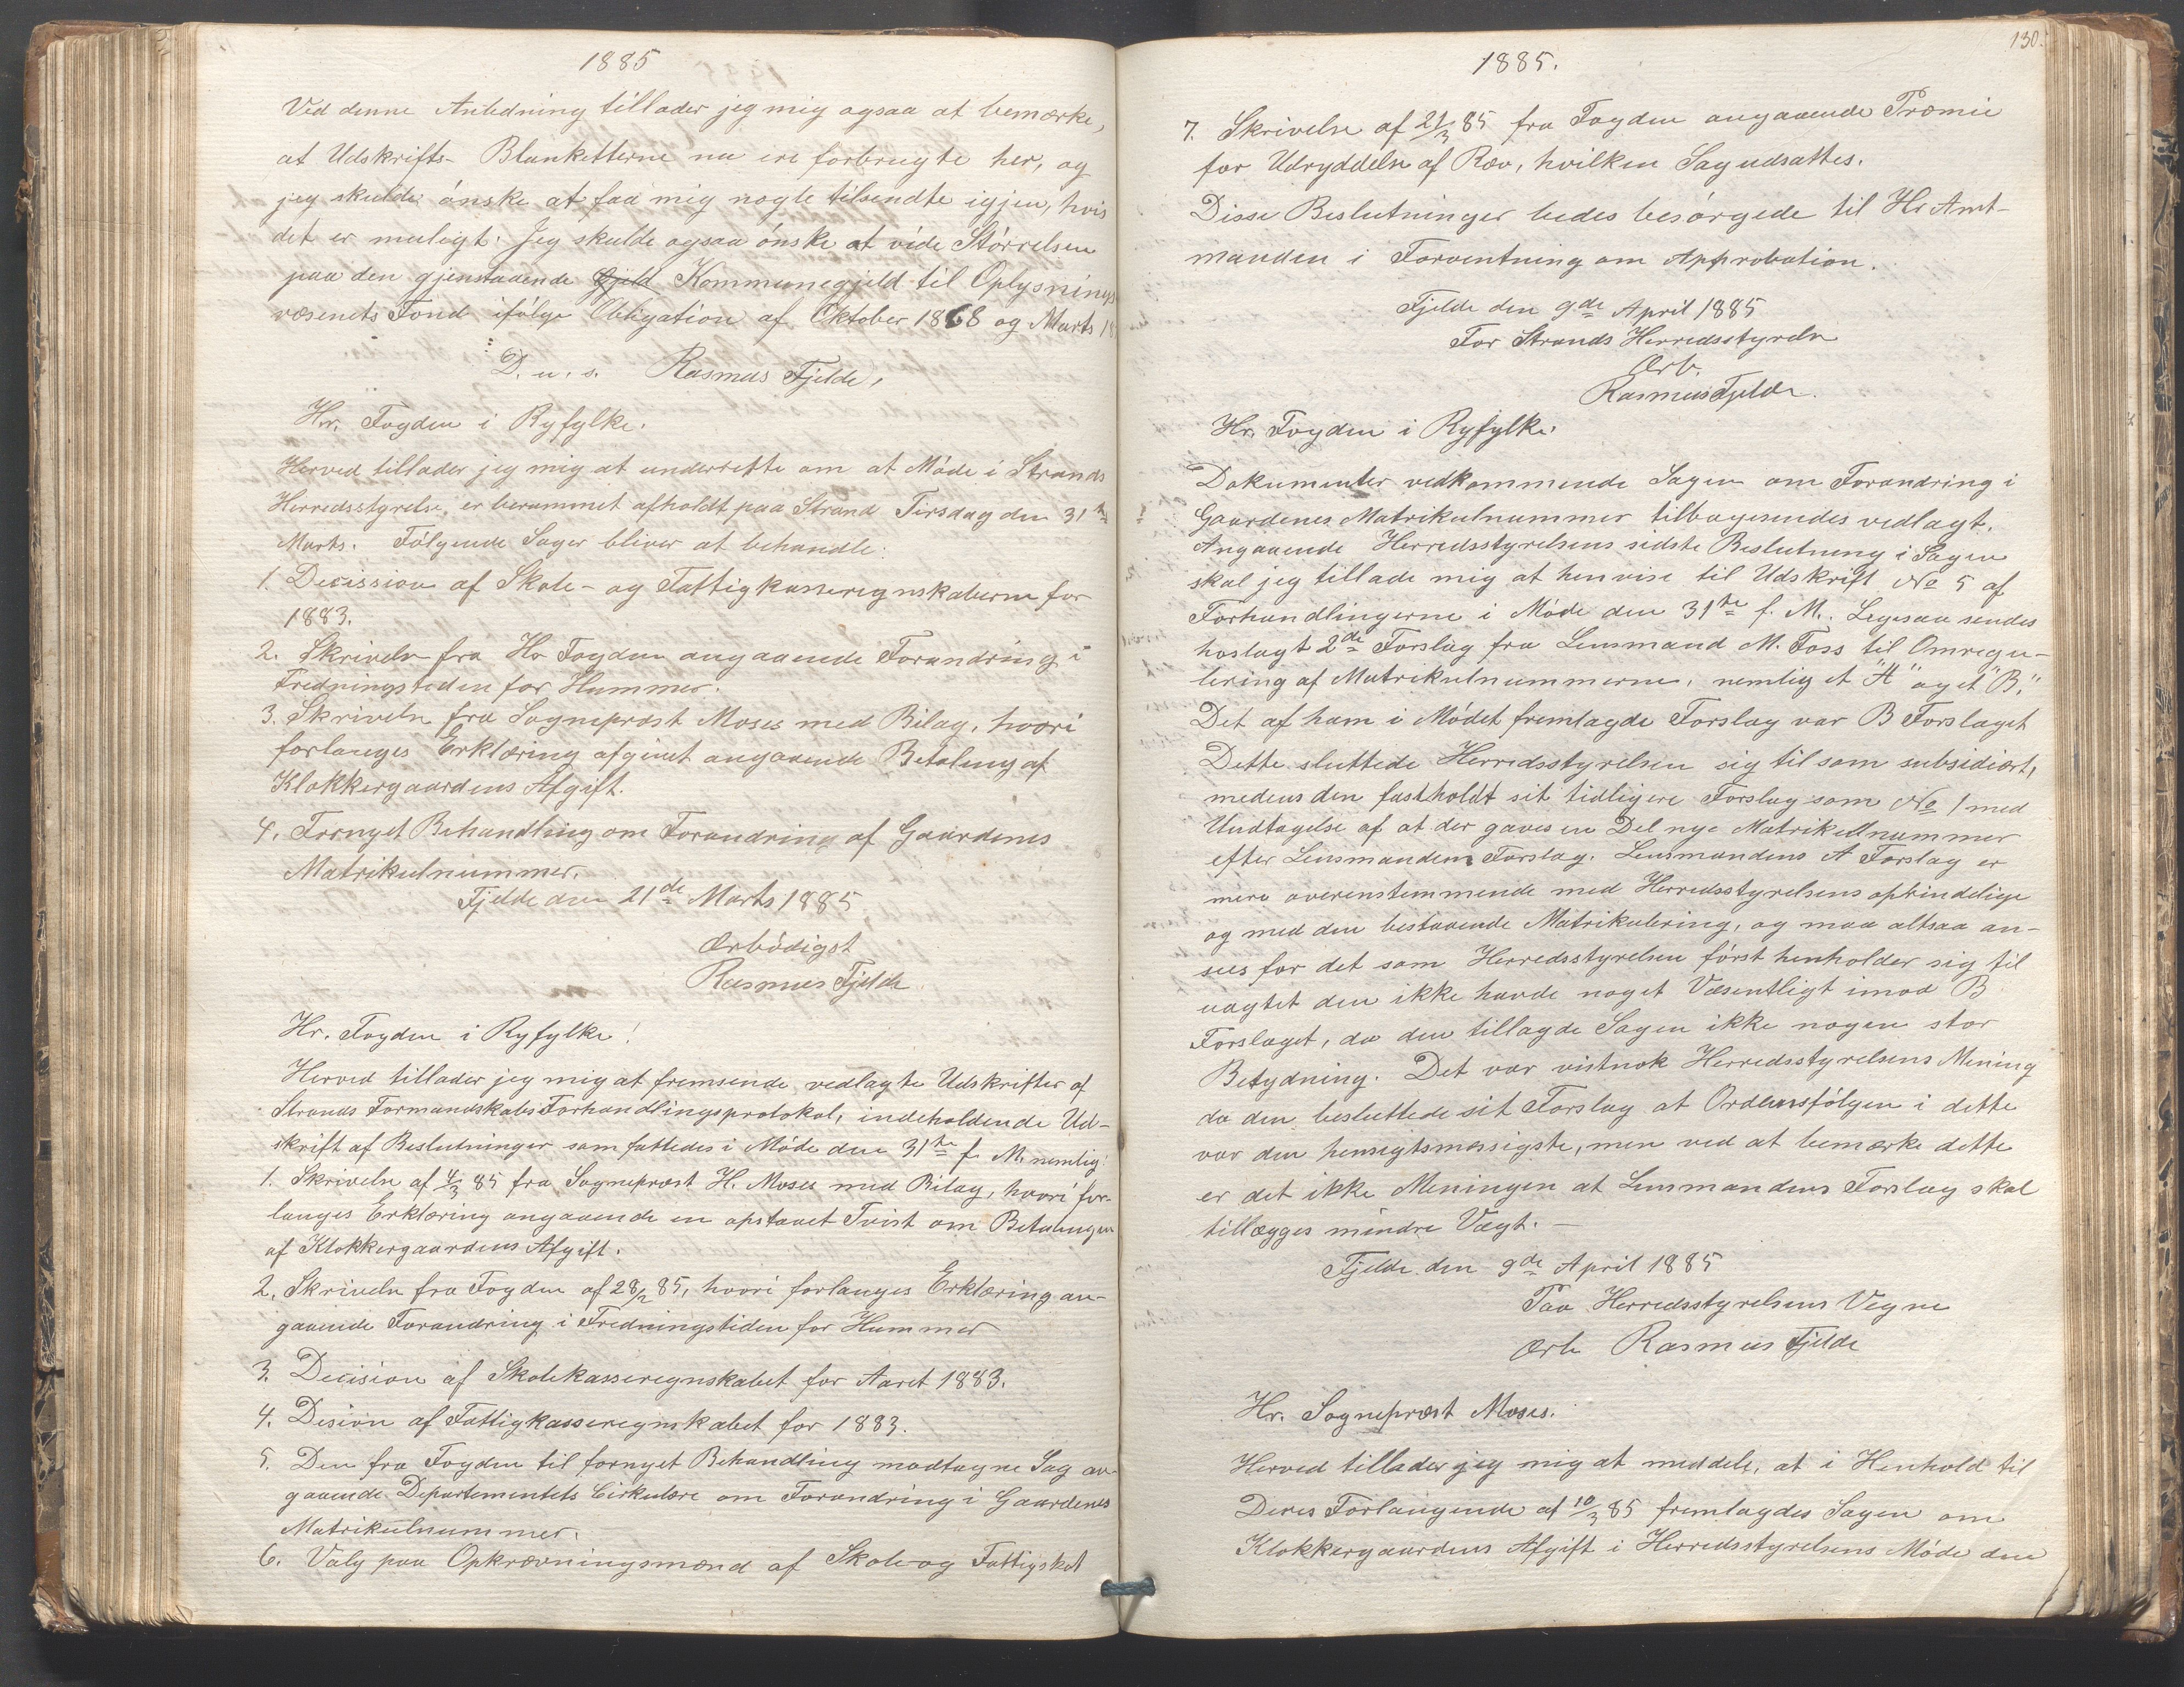 1885
Ved denne Anledning tillader jeg mig ogsaa at bemærke,
at Udskrifts-Blanketterne nu ere forbrugte her, og
jeg skulde ønske at faa mig nogle tilsendte igjen, hvis
det er muligt. Jeg skulde ogsaa ønske at vide Størrelsen
paa den gjenstaaende Gjeld Kommunegjeld til Oplysnings
væsenets Fond ifølge Obligation af Oktober 1868 og Marts 18
D. u. s. Rasmus Fjelde,
Hr. Fogden i Ryfylke.
Herved tillader jeg mig at underrette om at Møde i Strands
Herredsstyrelse, er berammet afholdt paa Strand Tirsdag den 31te
Marts. Følgende Sager bliver at behandle:
1. Decission af Skole- og Fattigkasseregnskaberne for
1883.
2. Skrivelse fra Hr Fogden angaaende Forandring i
Fredningstiden for Hummer.
3. Skrivelse fra Sognepræst Moses med Bilag, hvori
forlanges Erklæring afgivet angaaende Betaling af
Klokkergaardens Afgift.
4. Fornyet Behandling om Forandring af Gaardenes
Matrikulnummer.
Fjelde den 21de Marts 1885
Ærbødigst
Rasmus Fjelde
Hr. Fogden i Ryfylke!
Herved tillader jeg mig at fremsende vedlagte Udskrifter af
Strands Formandskabs Forhandlingsprotokol, indeholdende Ud-
skrift af Beslutninger som fattedes i Møde den 31te f. M. nemlig:
1. Skrivelse af 4/3 85 fra Sognepræst H. Moses med Bilag, hvori for-
langes Erklæring angaaende en opstaaet Tvist om Betalingen
af Klokkergaardens Afgift.
2. Skrivelse fra Fogden af 28/2 85, hvori forlanges Erklæring an-
gaaende Forandring i Fredningstiden for Hummer
3. Decision af Skolekasseregnskabet for Aaret 1883.
4. Desion af Fattigkasseregnskabet for 1883.
5. Den fra Fogden til fornyet Behandling modtagne Sag an-
gaaende Departementets Cirkulære om Forandring i Gaardenes
Matrikulnummer.
6. Valg paa Opkrævningsmænd af Skole og Fattigskat
130.
1885.
7. Skrivelse af 21/3 85 fra Fogden angaaende Præmie
for Udryddelse af Ræv, hvilken Sag udsattes.
Disse Beslutninger bedes besørgede til Hr Amt-
manden i Forventning om Approbation.
Fjelde den 9de April 1885
For Strands Herredsstyrelse
Ærb.
Rasmus Fjelde.
Hr. Fogden i Ryfylke.
Dokumenter vedkommende Sagen om Forandring i
Gaardenes Matrikulnummer tilbagesendes vedlagt.
Angaaende Herredsstyrelsens sidste Beslutning i Sagen
skal jeg tillade mig at henvise til Udskrift No 5 af
Forhandlingerne i Møde den 31te f. M. Ligesaa sendes
hoslagt 2de Forslag fra Lensmand M. Foss til Omregu-
lering af Matrikulnummerne, nemlig et "A" og et "B".
Det af ham i Mødet fremlagde Forslag var B Forslaget
Dette sluttede Herredsstyrelsen sig til som subsidiært,
medens den fastholdt sit tidligere Forslag som No 1 med
Undtagelse af at der gaves en Del nye Matrikulnummer
efter Lensmandens Forslag. Lensmandens A Forslag er
mere overenstemmende med Herredsstyrelsens oprindelige
og med den bestaaende Matrikulering, og maa altsaa an-
sees for det som Herredsstyrelsen først henholder sig til
uagtet den ikke havde noget Væsentligt imod B
Forslaget, da den tillagde Sagen ikke nogen stor
Betydning. Det var vistnok Herredsstyrelsens Mening
da den besluttede sit Forslag at Ordensfølgen i dette
var den hensigtsmæssigste, men ved at bemærke dette
er det ikke Meningen at Lensmandens Forslag skal
tillægges mindre Vægt. —
Fjelde den 9de April 1885
Paa Herredsstyrelsens Vegne
Ærb Rasmus Fjelde
Hr. Sognepræst Moses.
Herved tillader jeg mig at meddele, at i Henhold til
Deres Forlangende af 10/3 85 fremlagdes Sagen om
Klokkergaardens Afgift i Herredsstyrelsens Møde den